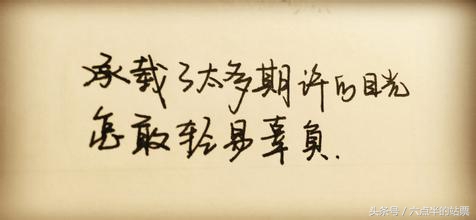 承载了太多期许的目光
怎敢轻易辜负.
头条号／六点半的站票